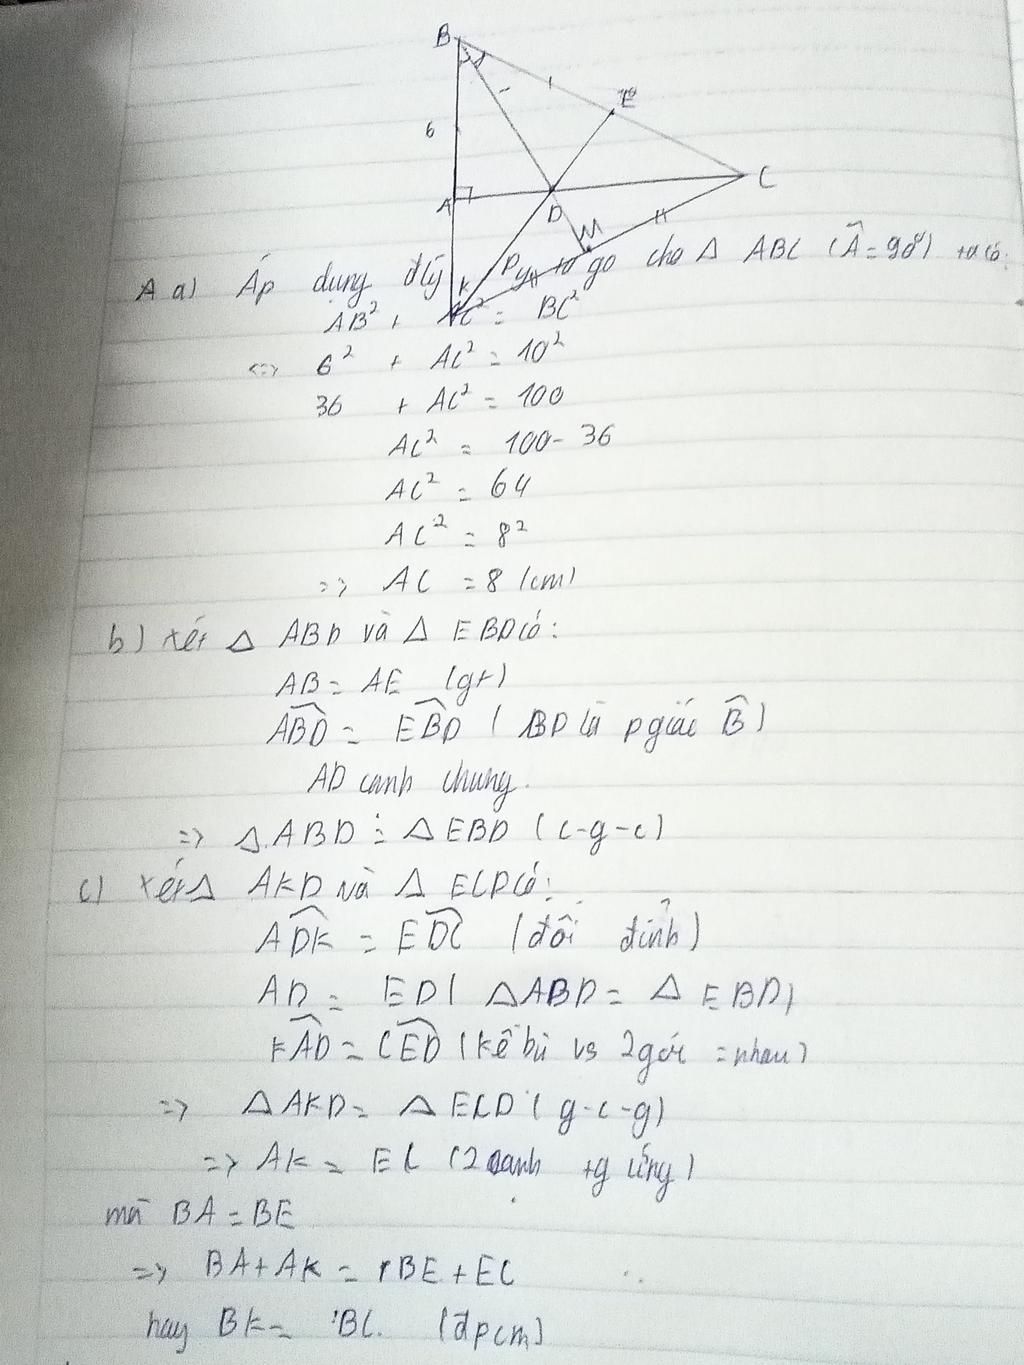 B
6
E
A
D
C
M
K
A a) Áp dụng đlý Pytago cho Δ ABC (Â = 90°) ta có:
AB² + AC² = BC²
<=> 6² + AC² = 10²
36 + AC² = 100
AC² = 100 - 36
AC² = 64
AC² = 8²
=> AC = 8 (cm)
b) xét Δ ABD và Δ EBD có:
AB = AE (gt)
ABD = EBD ( BD là pgiác B )
AD cạnh chung.
=> Δ ABD = Δ EBD ( c-g-c)
c) xét Δ AKD và Δ ECD có:
ADK = EDC (đối đỉnh)
AD = ED ( Δ ABD = Δ EBD)
KAD = CED (kề bù vs 2 góc = nhau)
=> Δ AKD = Δ ECD ( g-c-g)
=> AK = EC (2 cạnh tg ứng)
mà BA = BE
=> BA + AK = BE + EC
hay BK = BC. (đpcm)